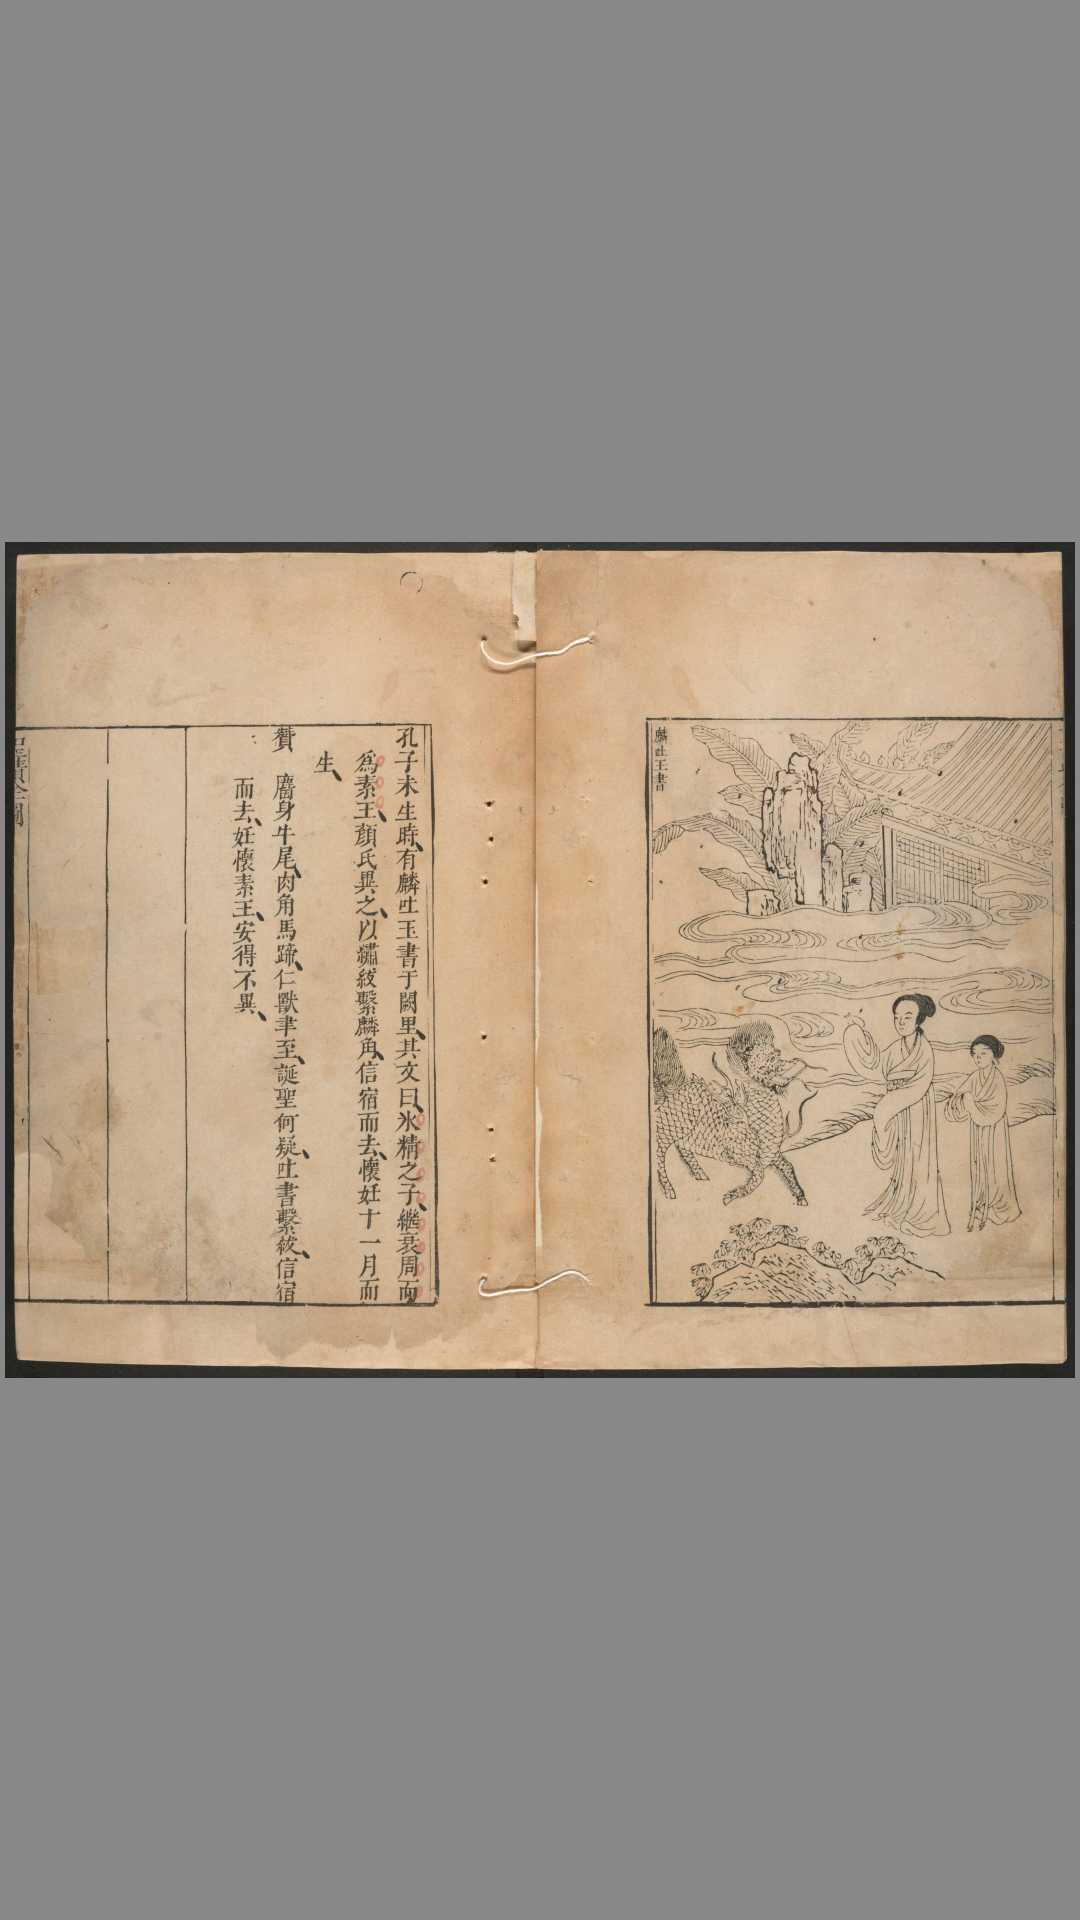 麟吐玉書
孔子未生時有麟吐玉書于闕里其文曰水精之子繼衰周而
爲素王顏氏異之以繡紱繫麟角信宿而去懷妊十一月而
生
贊
麕身牛尾肉角馬蹄仁獸聿至誕聖何疑吐書繫紱信宿
而去妊懷素王安得不異